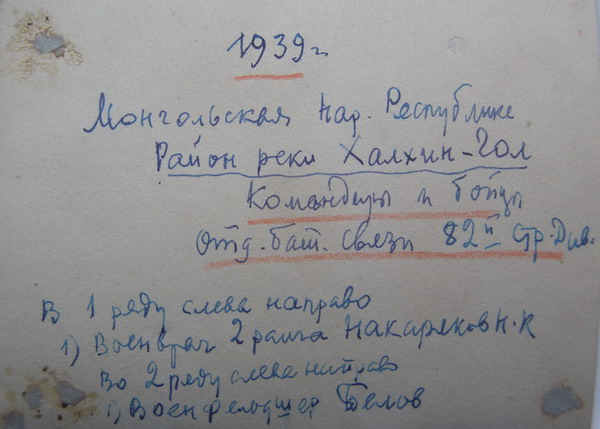 1939 г
Монгольская Нар. Республике
Район реки Халхин-Гол
Командиры и бойцы
Отд. бат. связи 82й Стр. Див.
В 1 ряду слева направо
1) Военврач 2 ранга Накаряков Н. К
Во 2 ряду слева направо
1) Военфельдшер Белов